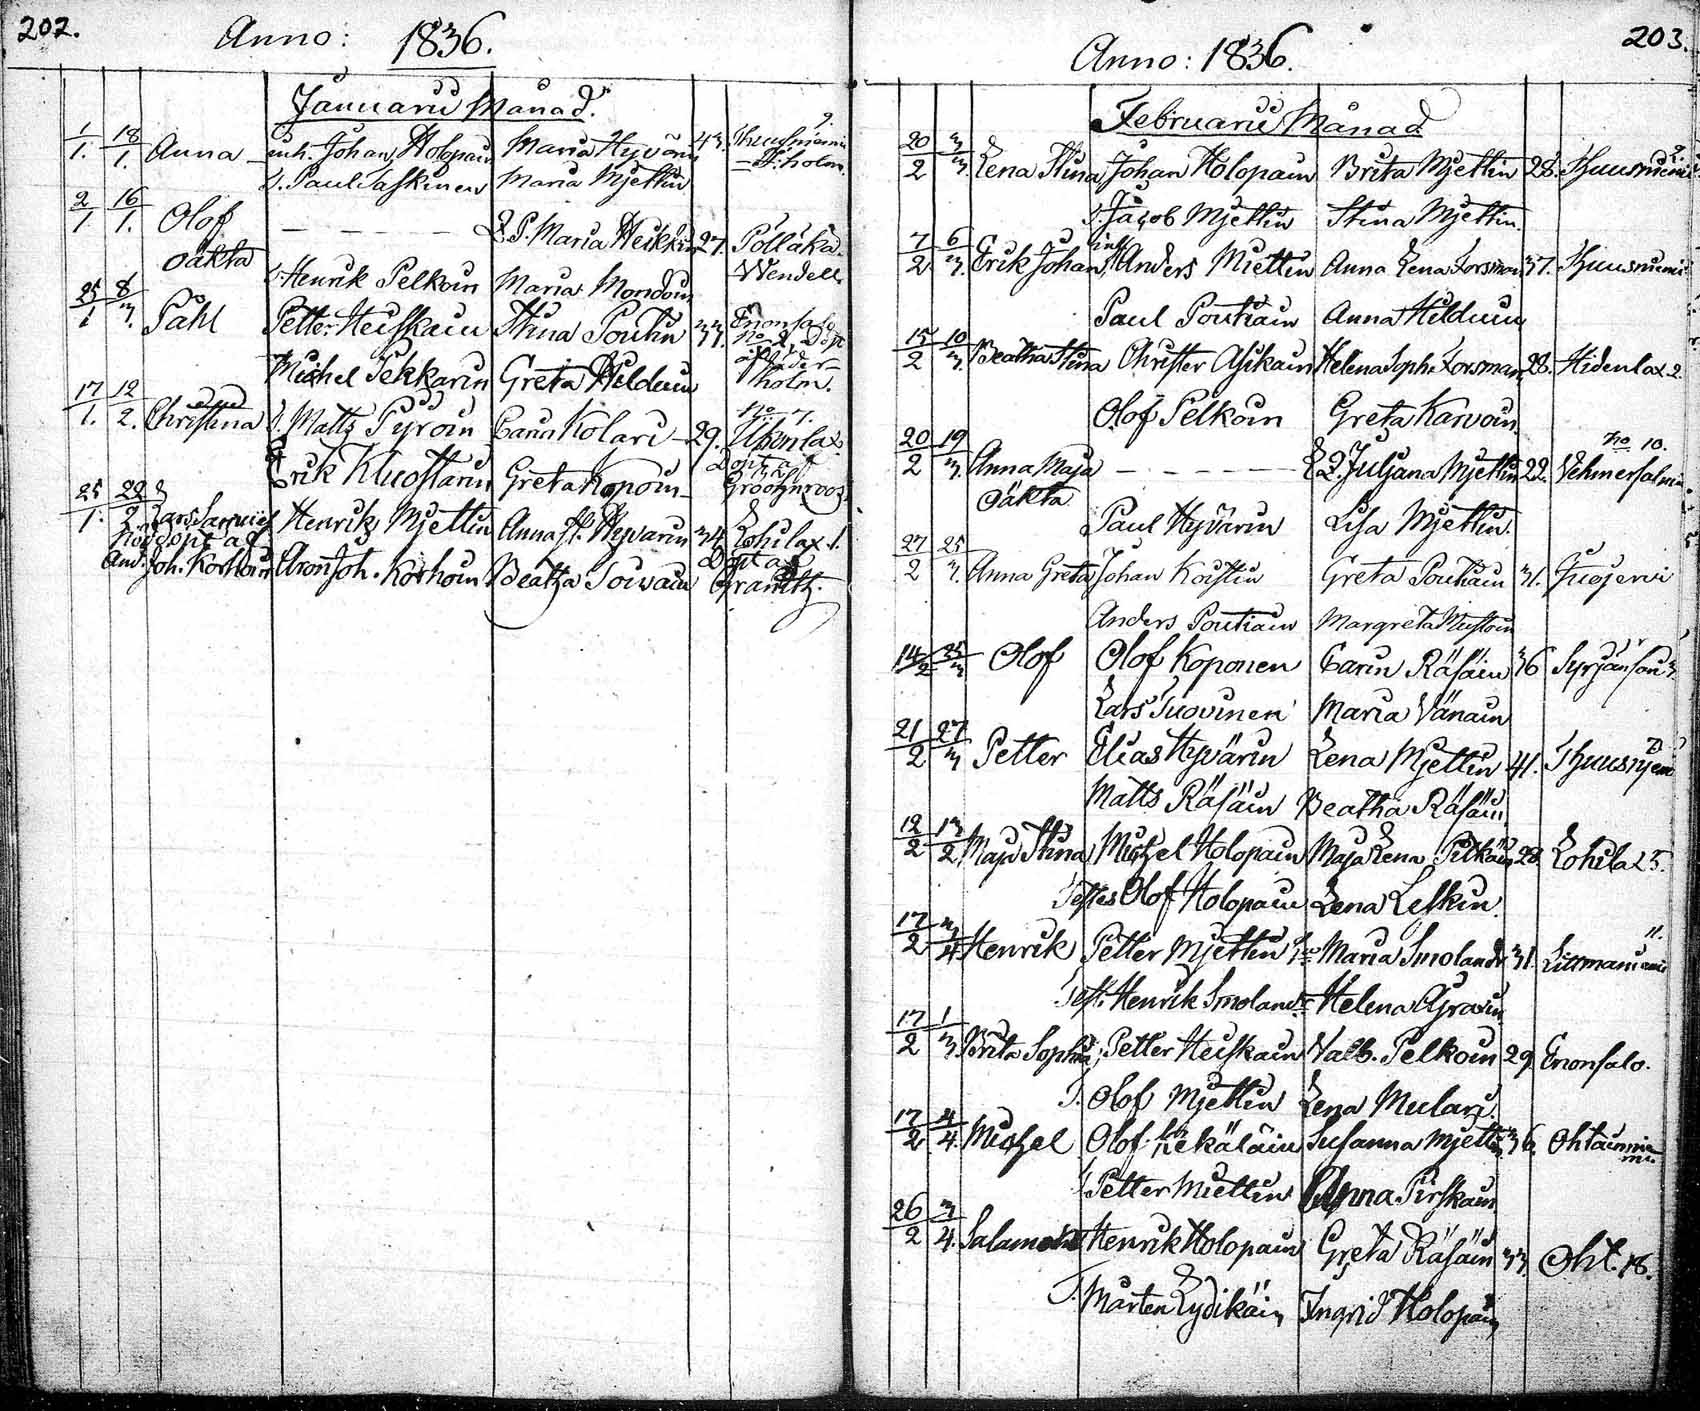 202.
Anno: 1836.
Januarii Månad.
1/1. 18/1. Anna inh. Johan Holopain Maria Hyvärin 43. Thuusniemi 2.
T. Paul Taskinen Maria Mjettin F:holm.
2/1 16/1. Olof - - - - - Q.P. Maria Heikkin 27. Pölläkä.
oäkta T. Henrik Pelkoin Maria Mondoin Wendell
25/1 8/3. Påhl Petter Heiskain Stina Poutin 33. Enonsalo
No 2, Döpt
Michel Pekkarin Greta Hilduin af Ceder-
holm.
17/1. 12/2. Christina T. Matts Pyroin Carin Kolari 29. No 7. Ukonlax
Erik Kluostarin Greta Koponin Döpt af
Gröönroos
25/1. 22/2 Lars Samuel Henrik Mjettin Anna St. Hyvärin 34. Kohilax 1.
Nöddöpt af Döpt af
And. Joh. Korhoin Aron Joh. Korhoin Beatha Toivain Grandtz.
203.
Anno: 1836.
Februarii Månad
20/2 3/3. Lena Stina Johan Holopain Brita Mjettin 28. Thuusniemi 2.
T. Jacob Mjettin Stina Mjettin
7/2 6/3. Erik Johan inh. Anders Miettin Anna Lena Forsman 37. Thuusniemi
Paul Poutiain Anna Hilduin
15/2 10/3. Beatha Stina Christer Asikain Helena Soph. Forsman 28. Hidenlax 2.
Olof Pelkoin Greta Karvoin
20/2 19/3. Anna Maja - - - - - Q. Juljana Mjettin 22. No 10. Vehmersalmi
Oäkta
Paul Hyvärin Lisa Mjettin.
27/2 25/3. Anna Greta Johan Koistin Greta Poutiain 31. Juojervi
Anders Poutiain Margreta Mustoin
14/2 25/3 Olof Olof Koponen Carin Räsäin 36 Syrjänsari
Lars Tuovinen Maria Vänain
21/2 27/3 Petter Elias Hyvärin Lena Mjettin 41. Thuusnjem
Matts Räsäin Beatha Räsäin.
12/2 13/2 Maja Stina Michel Holopain Maja Lena Pitkäin 28 Kohila 25.
Testes Olof Holopain Lena Leskin.
17/2 3/4 Henrik Petter Mjettin Maria Smoland 31. 11. Littmaniemi
Test. Henrik Smoland Helena Ajraxin
17/2 1/3 Brita Sophia Petter Heiskain Valb. Pelkoin 29 Enonsalo.
T. Olof Mjettin Lena Mulari.
17/2 4/4. Michel Olof Kekäläin Susanna Mjettin 36. Ohtaanniemi
T. Petter Miettin Anna Pirskain
26/2 3/4. Salamon Henrik Holopain Greta Räsäin 33. Oht. 18.
T. Mårten Lydikäin Ingrid Holopain